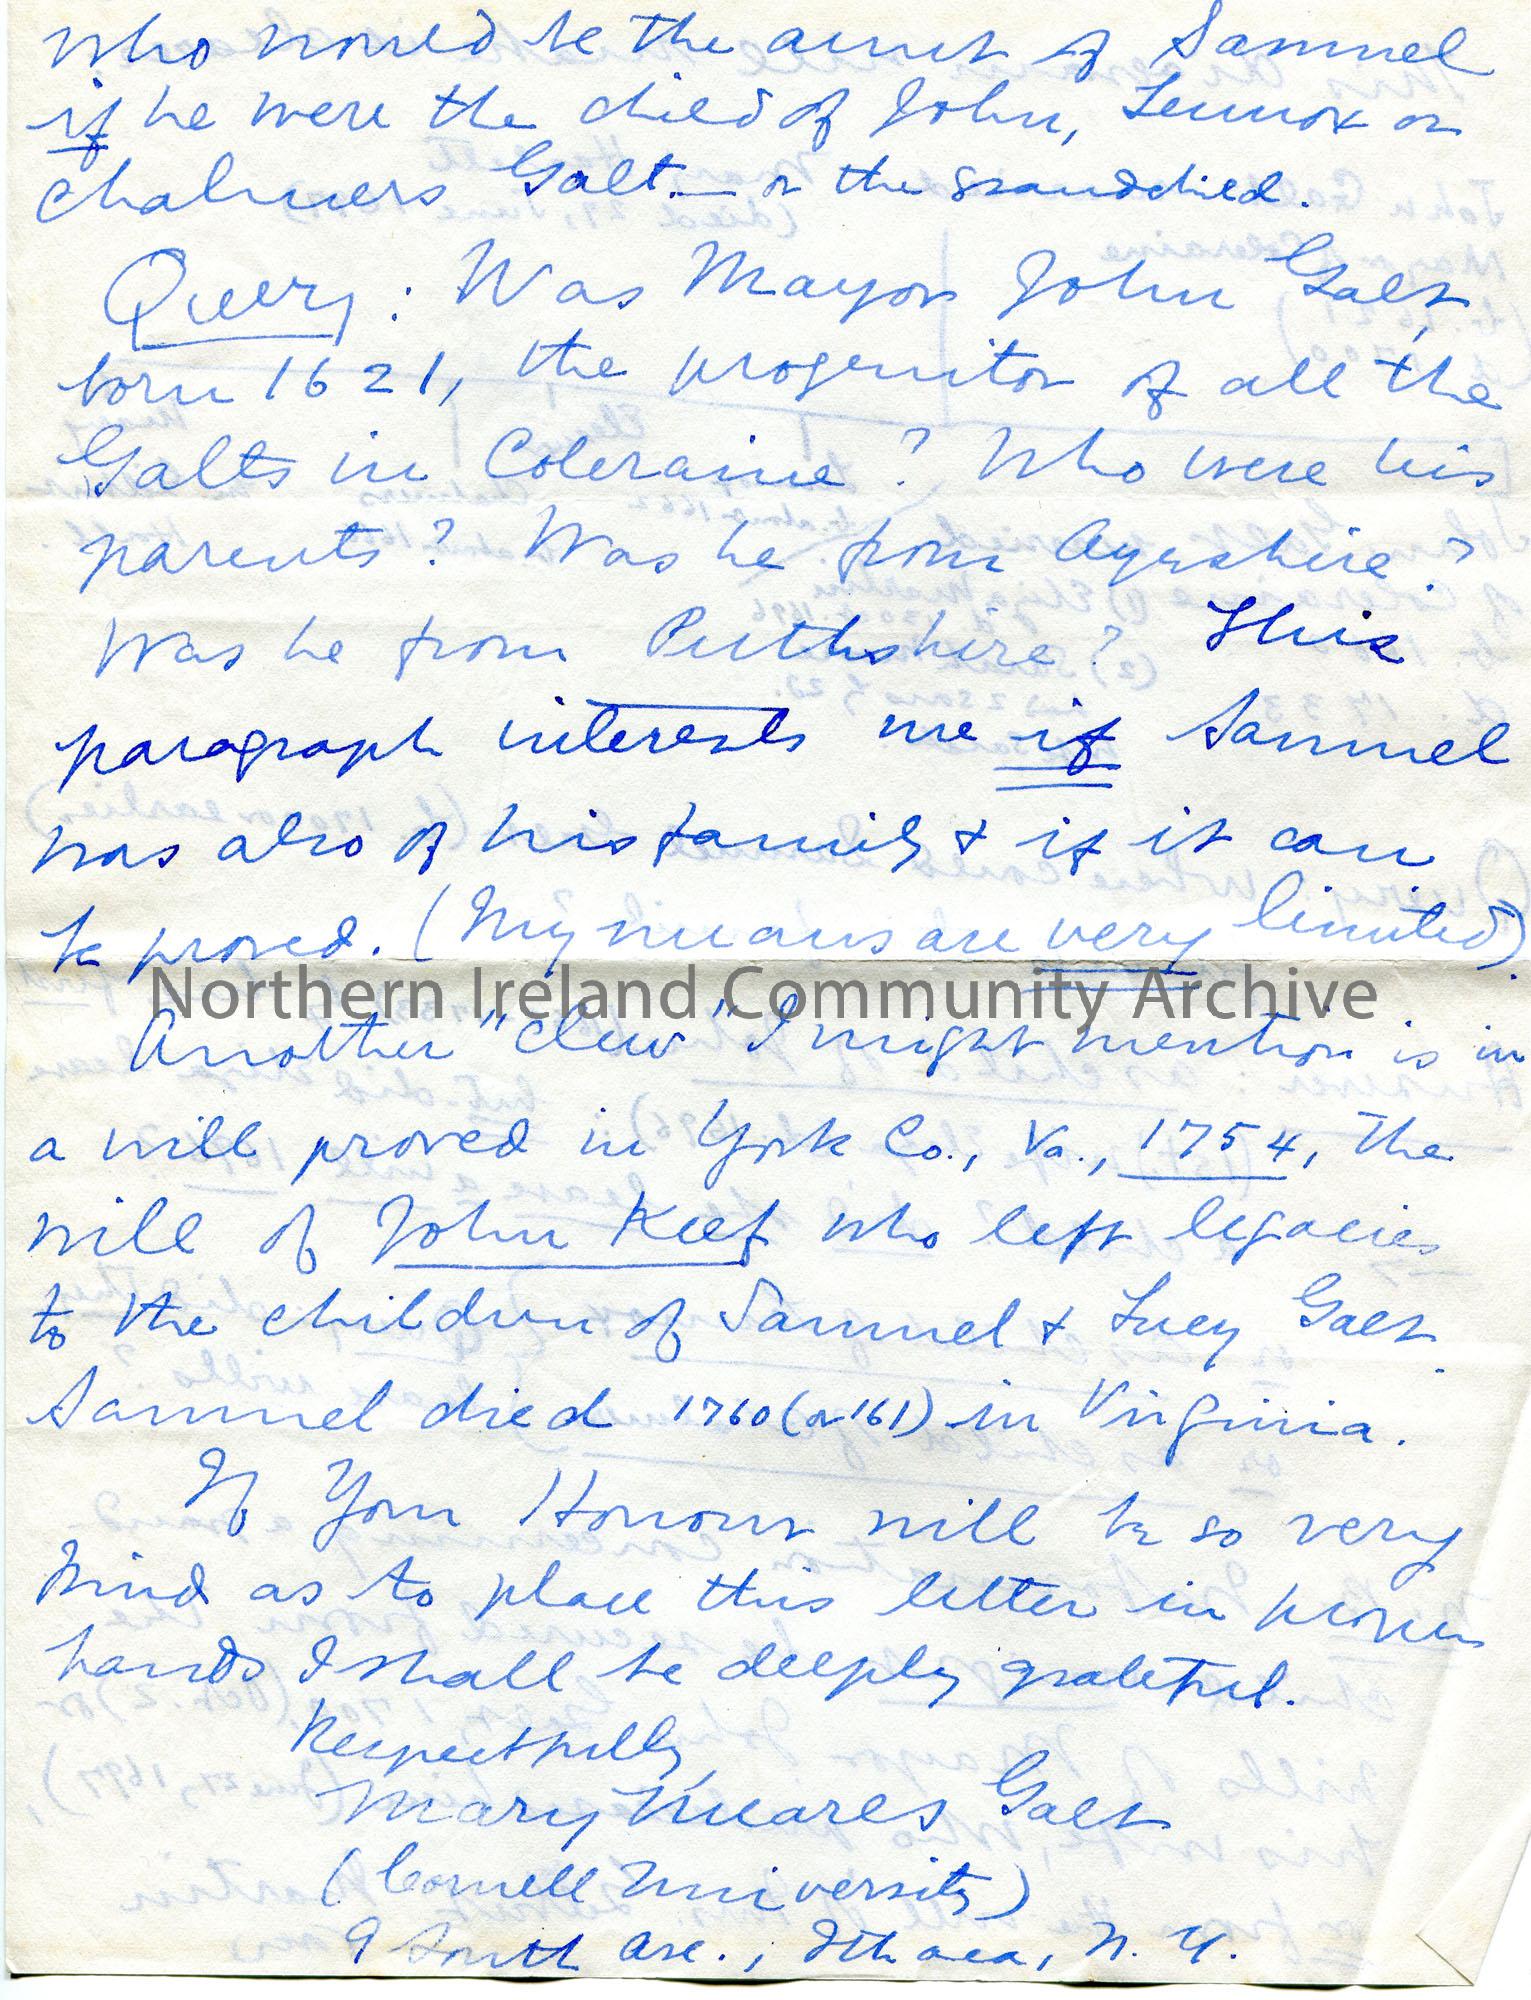 who would be the aunt of Samuel
if he were the child of John, Lennox or
Chalmers Galt — or the grandchild.
Query: Was Mayor John Galt,
born 1621, the progenitor of all the
Galts in Coleraine? Who were his
parents? Was he from Ayrshire?
Was he from Perthshire? This
paragraph interests me if Samuel
was also of his family & if it can
be proved. (My means are very limited).
Northern Ireland Community Archive
Another "clew" I might mention is in
a will proved in York Co., Va., 1754, the
will of John Keef who left legacies
to the children of Samuel & Lucy Galt.
Samuel died 1760 (or '61) in Virginia.
If Your Honour will be so very
kind as to place this letter in proper
hands I shall be deeply grateful.
Respectfully,
Mary Meares Galt
(Cornell University)
9 South Ave., Ithaca, N. Y.